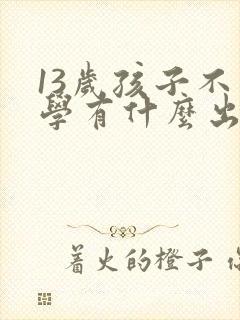 13歲孩子不
學有什麼出
著火的橙子